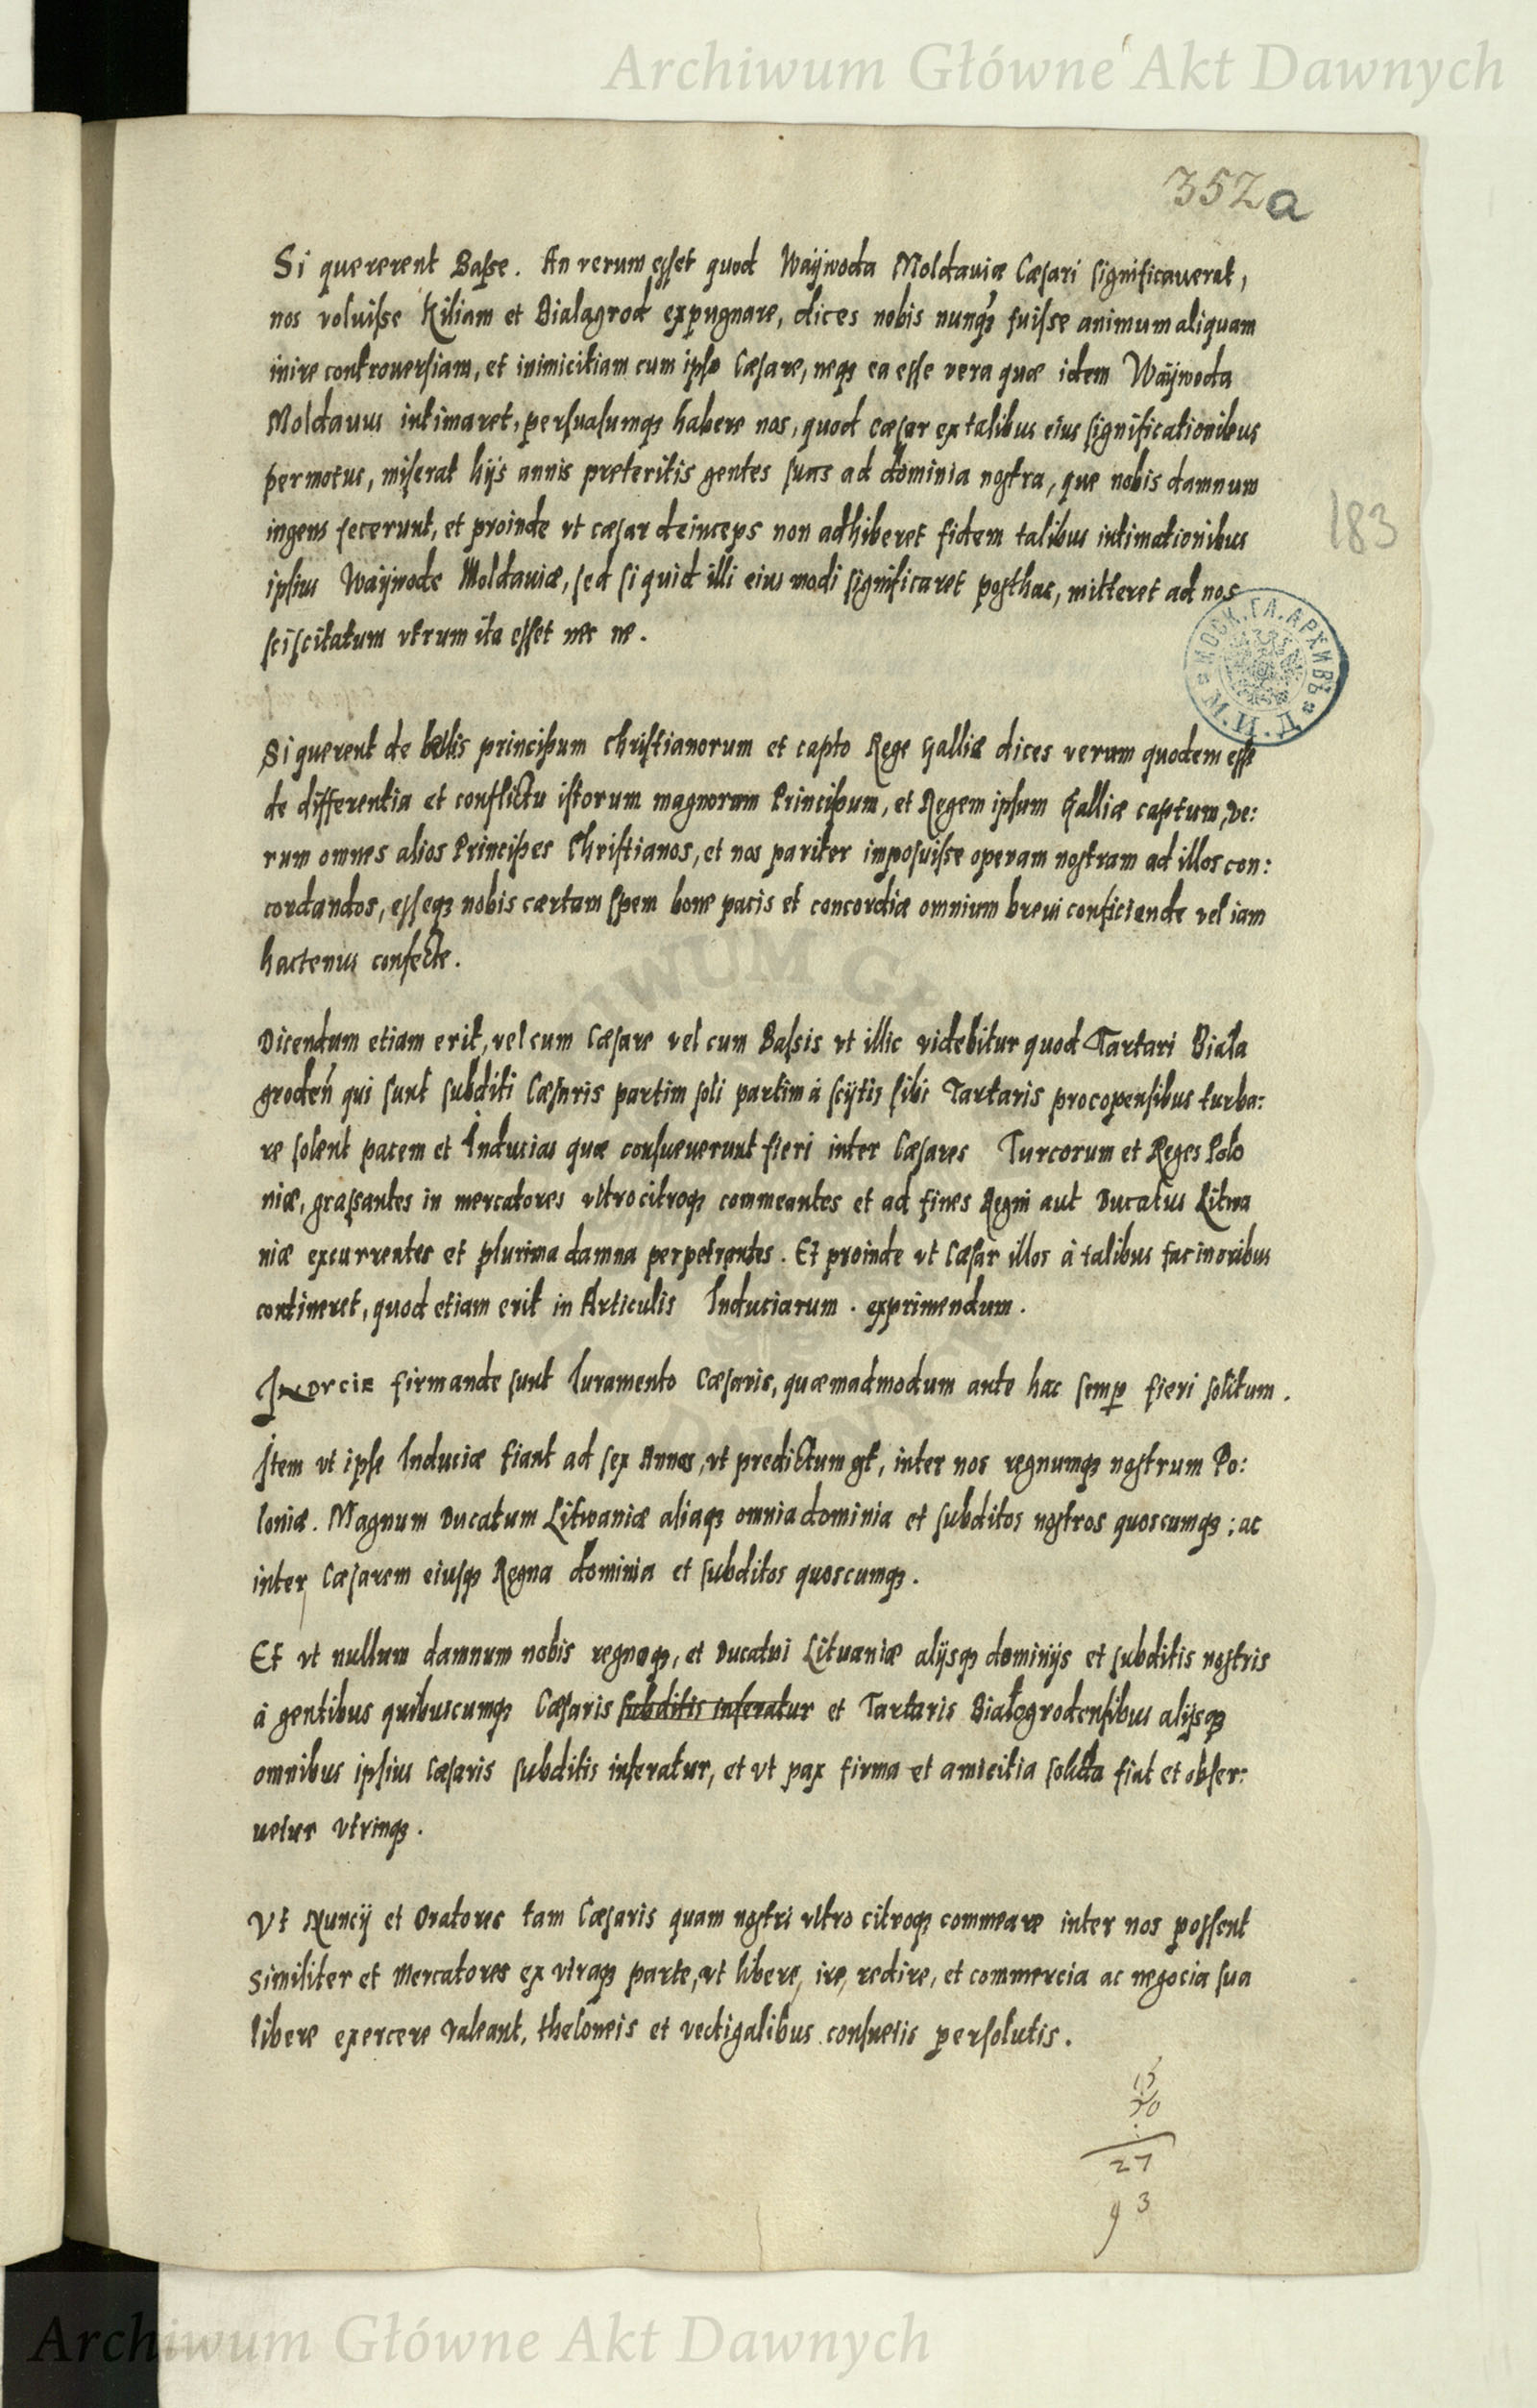 Archiwum Główne Akt Dawnych
352a
Si quererent Basse. An verum esset quod Waÿwoda Moldauiæ Cæsari significauerat,
nos voluisse Kiliam et Bialagrod expugnare, dices nobis nunqȝ fuisse animum aliquam
inire controuersiam, et inimicitiam cum ipso Cæsare, neqȝ ea esse vera quæ idem Waÿwoda
Moldauus intimaret, persuasumqȝ habere nos, quod cæsar ex talibus eius significationibus
permotus, miserat hijs annis preteritis gentes suas ad dominia nostra, que nobis damnum
ingens fecerunt, et proinde vt cæsar deinceps non adhiberet fidem talibus intimationibus
ipsius Waÿwode Moldauiæ, sed si quid illi eius modi significaret posthac, mitteret ad nos
sciscitatum vtrum ita esset nec ne.
183
М. Г. А. М. И. Д. МОСК. ГЛ. АРХИВЪ
Si querent de bellis principum christianorum et capto Rege Galliæ dices verum quodem esse
de differentia et conflictu istorum magnorum Principum, et Regem ipsum Galliæ captum, ve:
rum omnes alios Principes Christianos, et nos pariter imposuisse operam nostram ad illos con:
cordandos, esseqȝ nobis cærtam spem bone pacis et concordiæ omnium breui conficiende vel iam
hactenus confecte.
Dicendum etiam erit, vel cum Cæsare vel cum Bassis vt illic videbitur quod Tartari Biala
groden̄ qui sunt subditi Cæsaris partim soli partim à scijtis sibi Tartaris procopensibus turba:
re solent pacem et Inducias quæ consueuerunt fieri inter Cæsares Turcorum et Reges Polo
niæ, grassantes in mercatores vltrocitroqȝ commeantes et ad fines Regni aut Ducatus Litua
niæ excurrentes et plurima damna perpetrantes. Et proinde vt Cæsar illos à talibus facinoribus
contineret, quod etiam erit in Articulis Induciarum. exprimendum.
firmande sunt Iuramento Cæsaris, quæmadmodum ante hac semꝑ fieri solitum.
Item vt ipse Induciæ fiant ad sex Annos, vt predictum est, inter nos regnumqȝ nostrum Po:
loniæ. Magnum Ducatum Litwaniæ aliaqȝ omnia dominia et subditos nostros quoscumqȝ: ac
inter Cæsarem eiusqȝ Regna dominia et subditos quoscumqȝ.
Et vt nullum damnum nobis regnoqȝ, et Ducatui Lituaniæ alijsqȝ dominijs et subditis nostris
à gentibus quibuscumqȝ Cæsaris subditis inferatur et Tartaris Bialogrodensibus alijsqȝ
omnibus ipsius cæsaris subditis inferatur, et vt pax firma et amicitia solida fiat et obser:
uetur vtrinqȝ.
Vt Nuncij et Oratores tam Cæsaris quam nostri vltro citroqȝ commeare inter nos possent
Similiter et Mercatores ex vtraqȝ parte, vt libere, ire, redire, et commercia ac negocia sua
libere exercere valeant, theloneis et vectigalibus consuetis persolutis.
27
93
Archiwum Główne Akt Dawnych